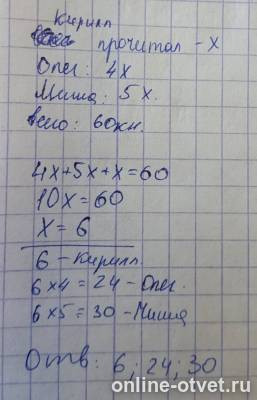 Кирилл
прочитал - х
Олег: 4х
Миша: 5х.
всего: 60кн.
4х+5х+х=60
10х=60
х=6
6 - Кирилл.
6×4=24 - Олег.
6×5=30 - Миша
Отв: 6; 24; 30
online-otvet.ru